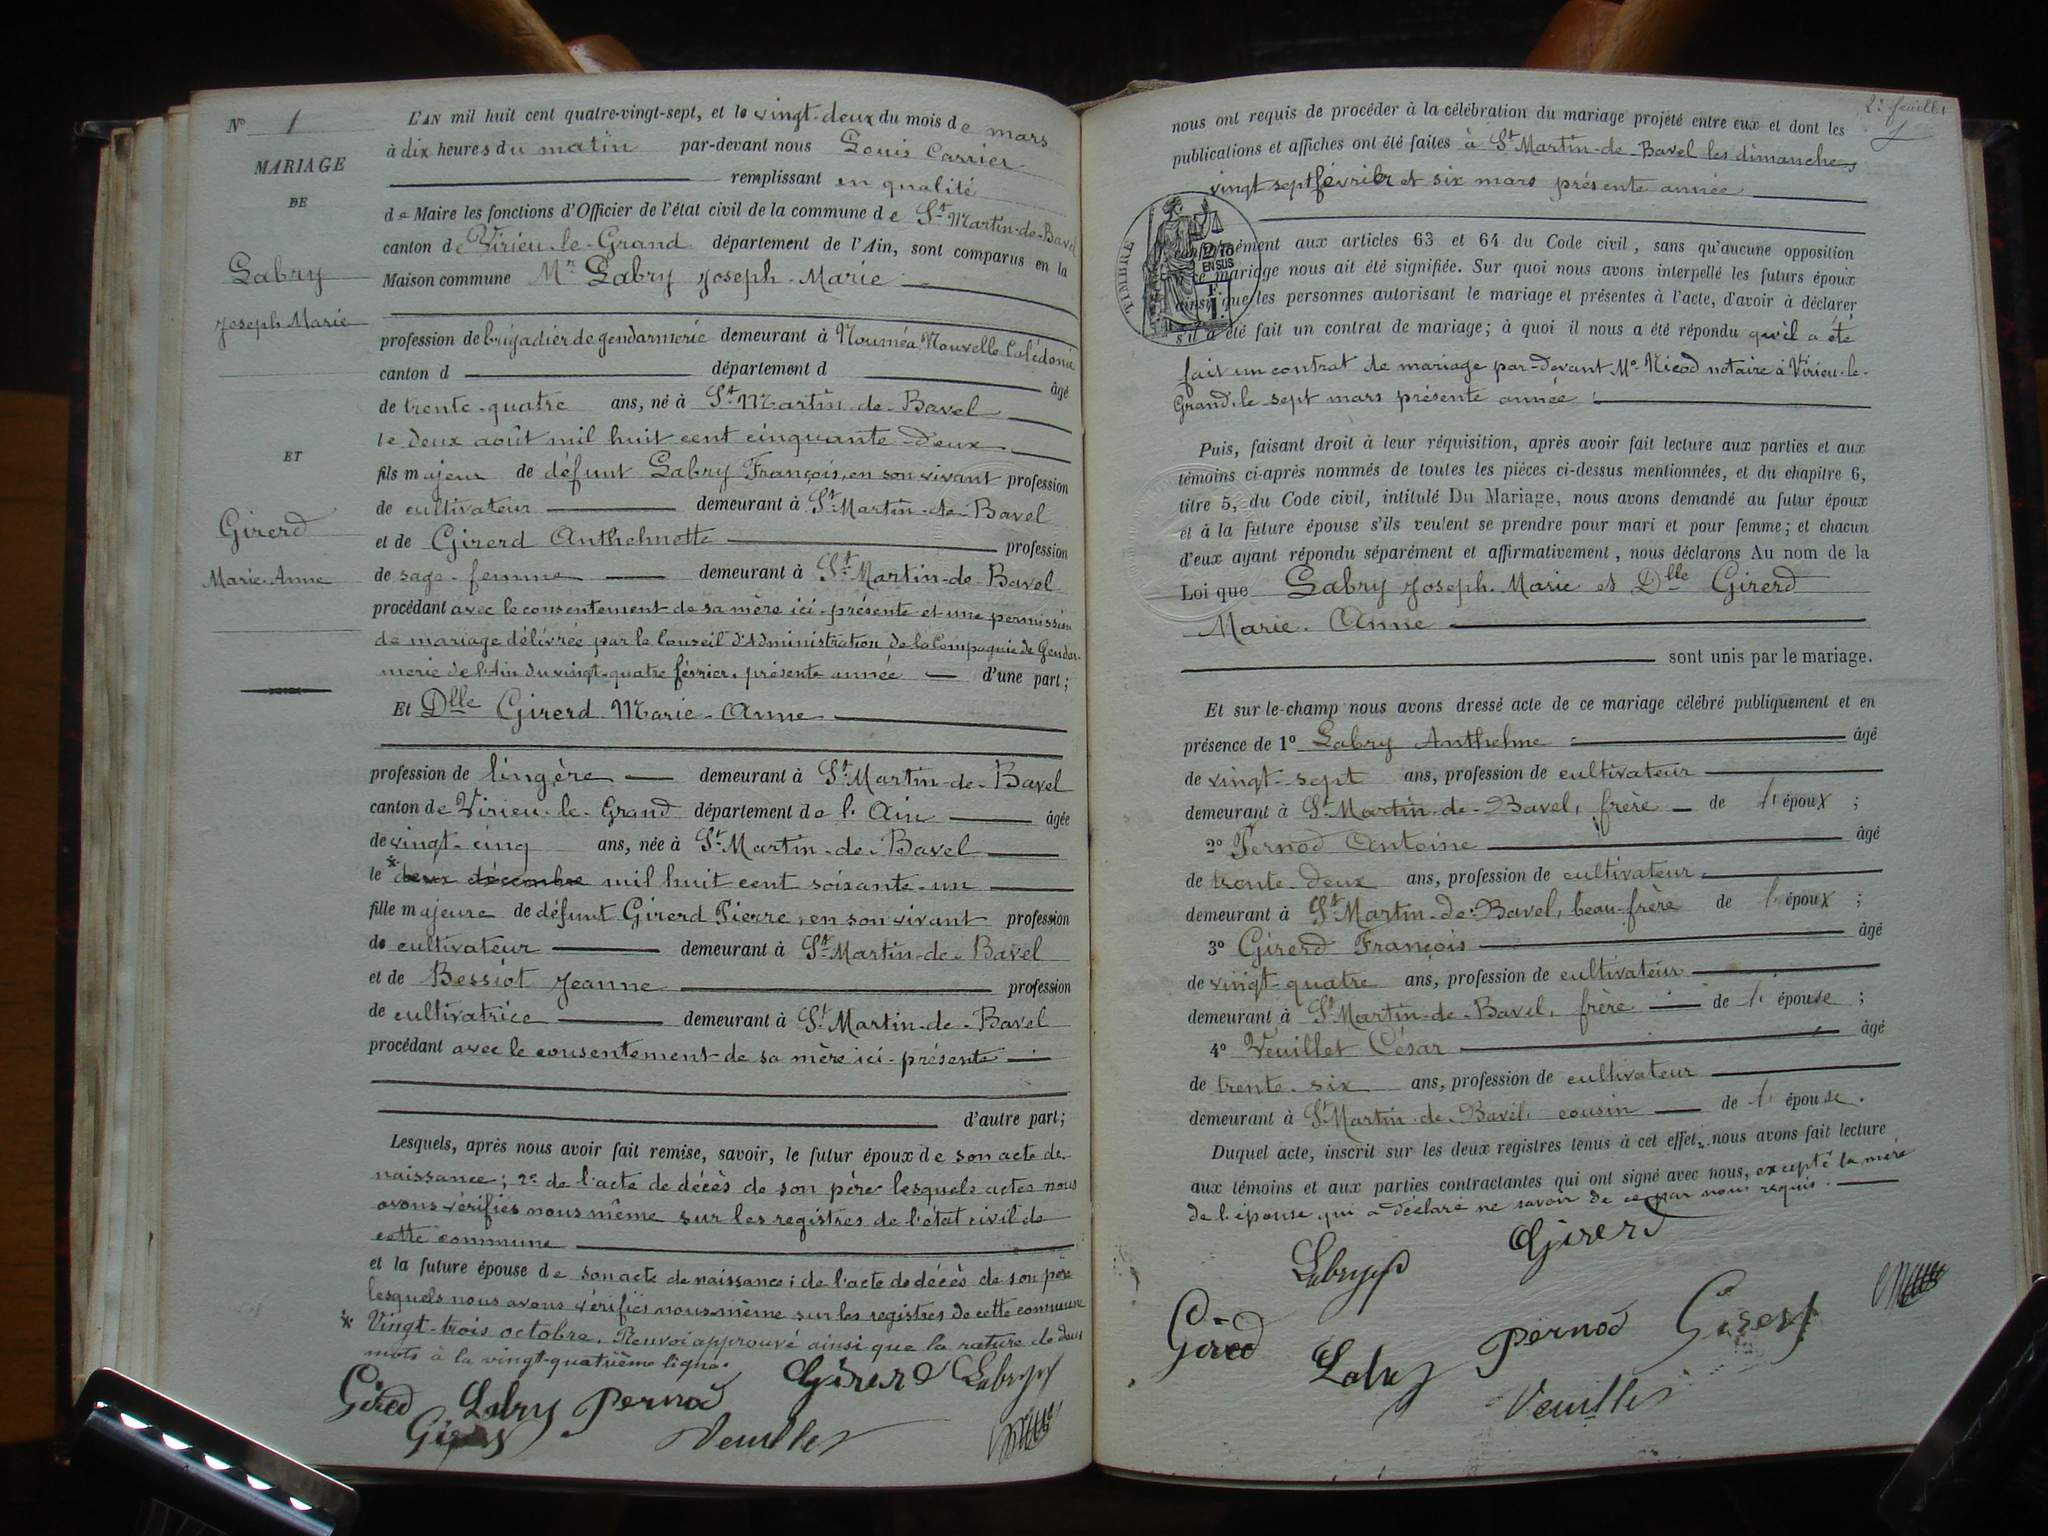 N° 1
MARIAGE
DE
Labry
Joseph Marie
ET
Girerd
Marie-Anne
L'AN mil huit cent quatre-vingt-sept, et le vingt-deux du mois de mars
à dix heures du matin par-devant nous Louis Carrier
remplissant en qualité
de Maire les fonctions d'Officier de l'état civil de la commune de St Martin-de-Bavel
canton de Virieu-le-Grand département de l'Ain, sont comparus en la
Maison commune Mr Labry Joseph-Marie
profession de brigadier de gendarmerie demeurant à Nouméa Nouvelle Calédonie
canton d département d âgé
de trente-quatre ans, né à St Martin-de-Bavel
le deux août mil huit cent cinquante-deux
fils majeur de défunt Labry François, en son vivant profession
de cultivateur demeurant à St Martin-de-Bavel
et de Girerd Anthelmette profession
de sage-femme demeurant à St Martin-de-Bavel
procédant avec le consentement de sa mère ici-présente et une permission
de mariage délivrée par le Conseil d'Administration de la Compagnie de Gendar-
merie de l'Ain du vingt-quatre février, présente année d'une part;
Et Dlle Girerd Marie-Anne
profession de lingère demeurant à St Martin-de-Bavel
canton de Virieu-le-Grand département de l'Ain âgée
de vingt-cinq ans, née à St Martin-de-Bavel
le * deux décembre mil huit cent soixante-un
fille majeure de défunt Girerd Pierre, en son vivant profession
de cultivateur demeurant à St Martin-de-Bavel
et de Bessiot Jeanne profession
de cultivatrice demeurant à St Martin-de-Bavel
procédant avec le consentement de sa mère ici-présente
d'autre part;
Lesquels, après nous avoir fait remise, savoir, le futur époux de son acte de
naissance; 2° de l'acte de décès de son père lesquels actes nous
avons vérifiés nous même sur les registres de l'état civil de
cette commune
et la future épouse de son acte de naissance; de l'acte de décès de son père
lesquels nous avons vérifiés nous même sur les registres de cette commune
* Vingt-trois octobre. Renvoi approuvé ainsi que la rature de deux
mots à la vingt-quatrième ligne.
Girerd Labry
Gired Labry Pernod
Girerd Veuillet
2e feuillet
nous ont requis de procéder à la célébration du mariage projeté entre eux et dont les
publications et affiches ont été faites à St Martin-de-Bavel les dimanches
vingt sept février et six mars présente année
TIMBRE
2/10
EN SUS
F.
1.
conformément aux articles 63 et 64 du Code civil, sans qu'aucune opposition
ce mariage nous ait été signifiée. Sur quoi nous avons interpellé les futurs époux
ainsi que les personnes autorisant le mariage et présentes à l'acte, d'avoir à déclarer
s'il a été fait un contrat de mariage; à quoi il nous a été répondu qu'il a été
fait un contrat de mariage par-devant Me Nicod notaire à Virieu-le-
Grand, le sept mars présente année
Puis, faisant droit à leur réquisition, après avoir fait lecture aux parties et aux
témoins ci-après nommés de toutes les pièces ci-dessus mentionnées, et du chapitre 6,
titre 5, du Code civil, intitulé Du Mariage, nous avons demandé au futur époux
et à la future épouse s'ils veulent se prendre pour mari et pour femme; et chacun
d'eux ayant répondu séparément et affirmativement, nous déclarons Au nom de la
Loi que Labry Joseph-Marie et Dlle Girerd
Marie-Anne
sont unis par le mariage.
Et sur-le-champ nous avons dressé acte de ce mariage célébré publiquement et en
présence de 1° Labry Anthelme âgé
de vingt-sept ans, profession de cultivateur
demeurant à St Martin-de-Bavel, frère de l'époux;
2° Pernod Antoine âgé
de trente-deux ans, profession de cultivateur
demeurant à St Martin-de-Bavel, beau-frère de l'époux;
3° Girerd François âgé
de vingt-quatre ans, profession de cultivateur
demeurant à St Martin-de-Bavel, frère de l'épouse;
4° Veuillet César âgé
de trente-six ans, profession de cultivateur
demeurant à St Martin-de-Bavel, cousin de l'épouse.
Duquel acte, inscrit sur les deux registres tenus à cet effet, nous avons fait lecture
aux témoins et aux parties contractantes qui ont signé avec nous, excepté la mère
de l'épouse qui a déclaré ne savoir de ce par nous requis.
Labry Girerd
Gired Labry Pernod Girerd
Veuillet